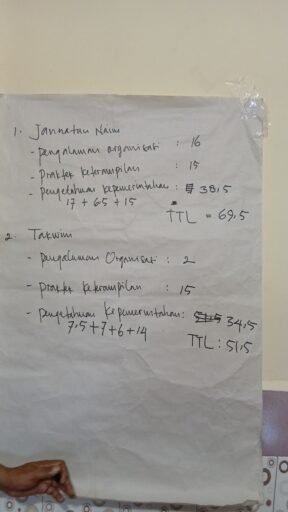 1. Jannatun Naim
- pengalaman organisasi : 16
- Praktek keterampilan : 15
- pengetahuan kepemerintahan : 38,5
17 + 6.5 + 15
TTL = 69,5
2. Takwim
- pengalaman Organisasi : 2
- praktek keterampilan : 15
- pengetahuan kepemerintahan : 34,5
7.5 + 7 + 6 + 14
TTL : 51,5